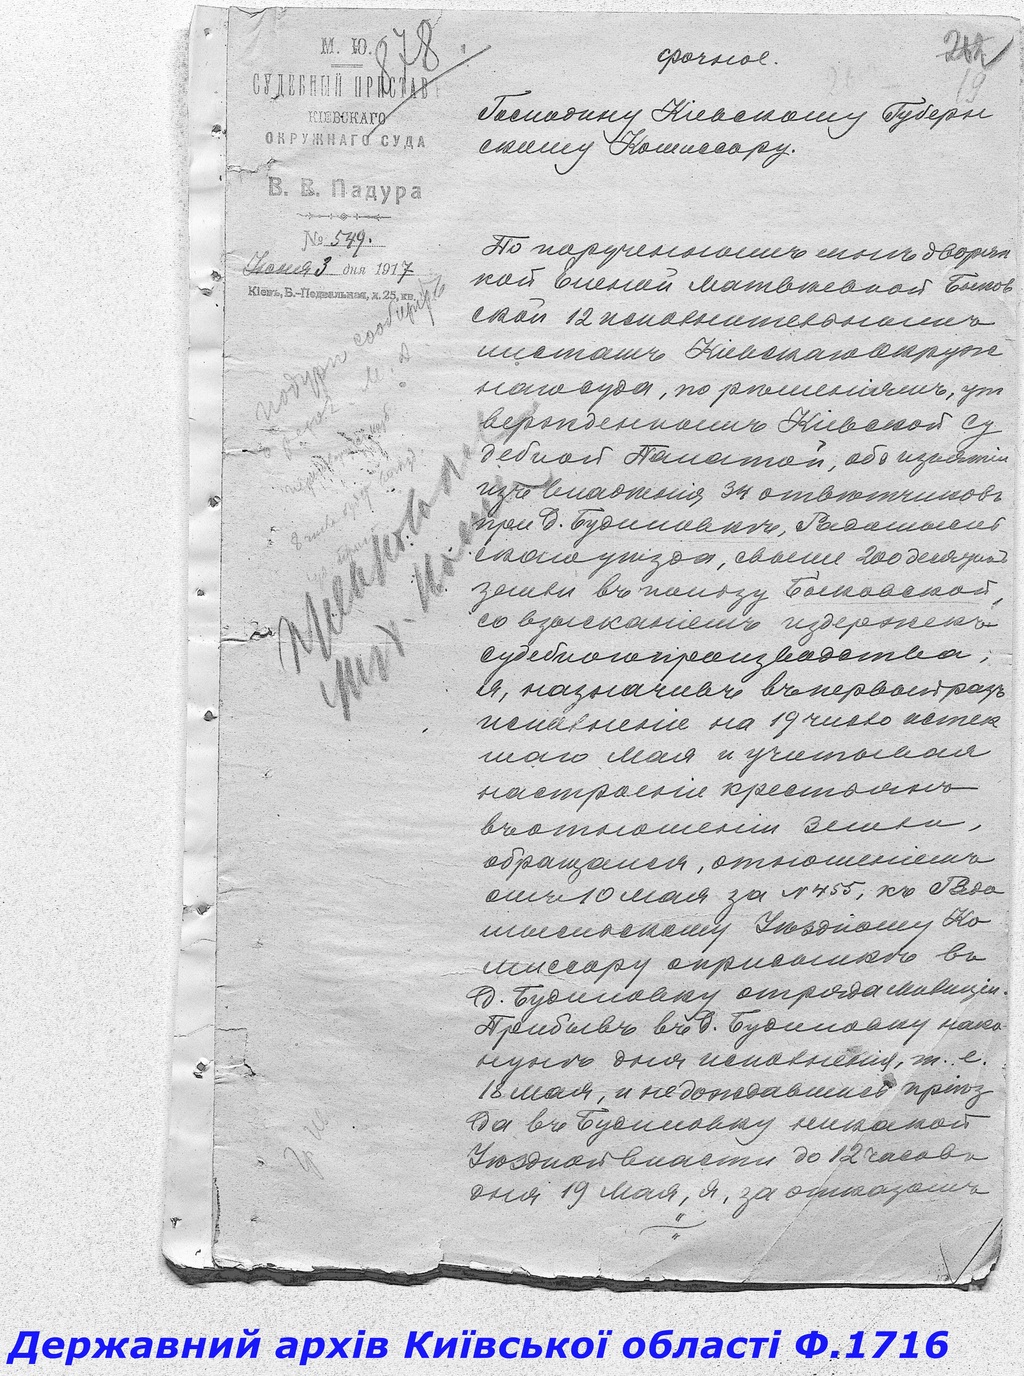 М. Ю.
878
СУДЕБНЫЙ ПРИСТАВЪ
КІЕВСКАГО
ОКРУЖНАГО СУДА
В. В. Падура
№ 549.
Іюня 3 дня 1917
Кіевъ, Б.-Подвальная, д. 25, кв.
Срочное.
19
Господину Кіевскому Губерн
скому Комиссару.
По порученнымъ мнѣ дворян
кой Еленой Матвѣевной Быков
ской 12 исполнительнымъ
листамъ Кіевскаго Окруж
наго суда, по рѣшеніямъ, ут
вержденнымъ Кіевской Су
дебной Палатой, объ изъятіи
изъ владѣнія 34 отвѣтчиковъ
при д. Будиловкѣ, Радомысль
скаго уѣзда, свыше 200 десятинъ
земли въ пользу Быковской,
со взысканіемъ издержекъ
судебнаго производства,
я, назначивъ въ первый разъ
исполненіе на 19 число истек
шаго Мая и учитывая
настроеніе крестьянъ
въ отношеніи земли,
обращался, отношеніемъ
отъ 10 Мая за №455, къ Радо
мысльскому Уѣздному Ко
миссару о присылкѣ въ
д. Будиловку отряда милиціи.
Прибывъ въ д. Будиловку нака
нунѣ дня исполненія, т. е.
18 Мая, и не дождавшись пріѣз
да въ Будиловку никакой
Уѣздной власти до 12 часовъ
дня 19 Мая, я, за отказомъ
Державний архів Київської області Ф.1716